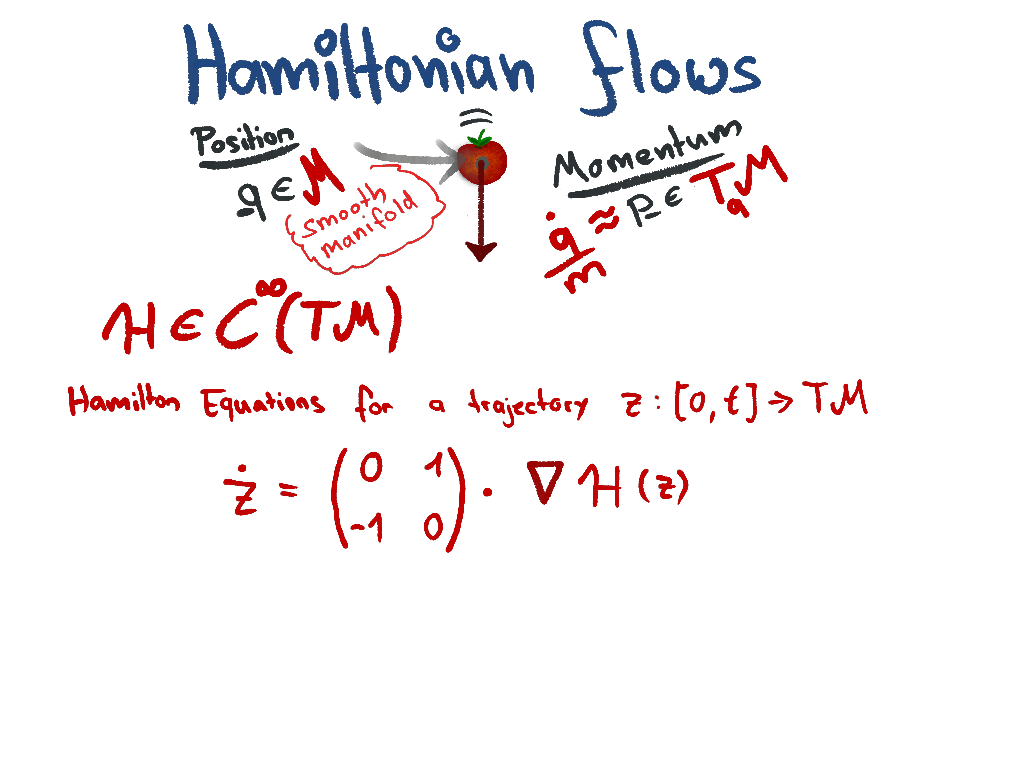 Hamiltonian flows
Position
q ∈ M
smooth
manifold
Momentum
q̇/m ≈ p ∈ T_q M
H ∈ C^∞(TM)
Hamilton Equations for a trajectory z : [0, t] → TM
ż = ( 0 1 ; -1 0 ) · ∇ H (z)